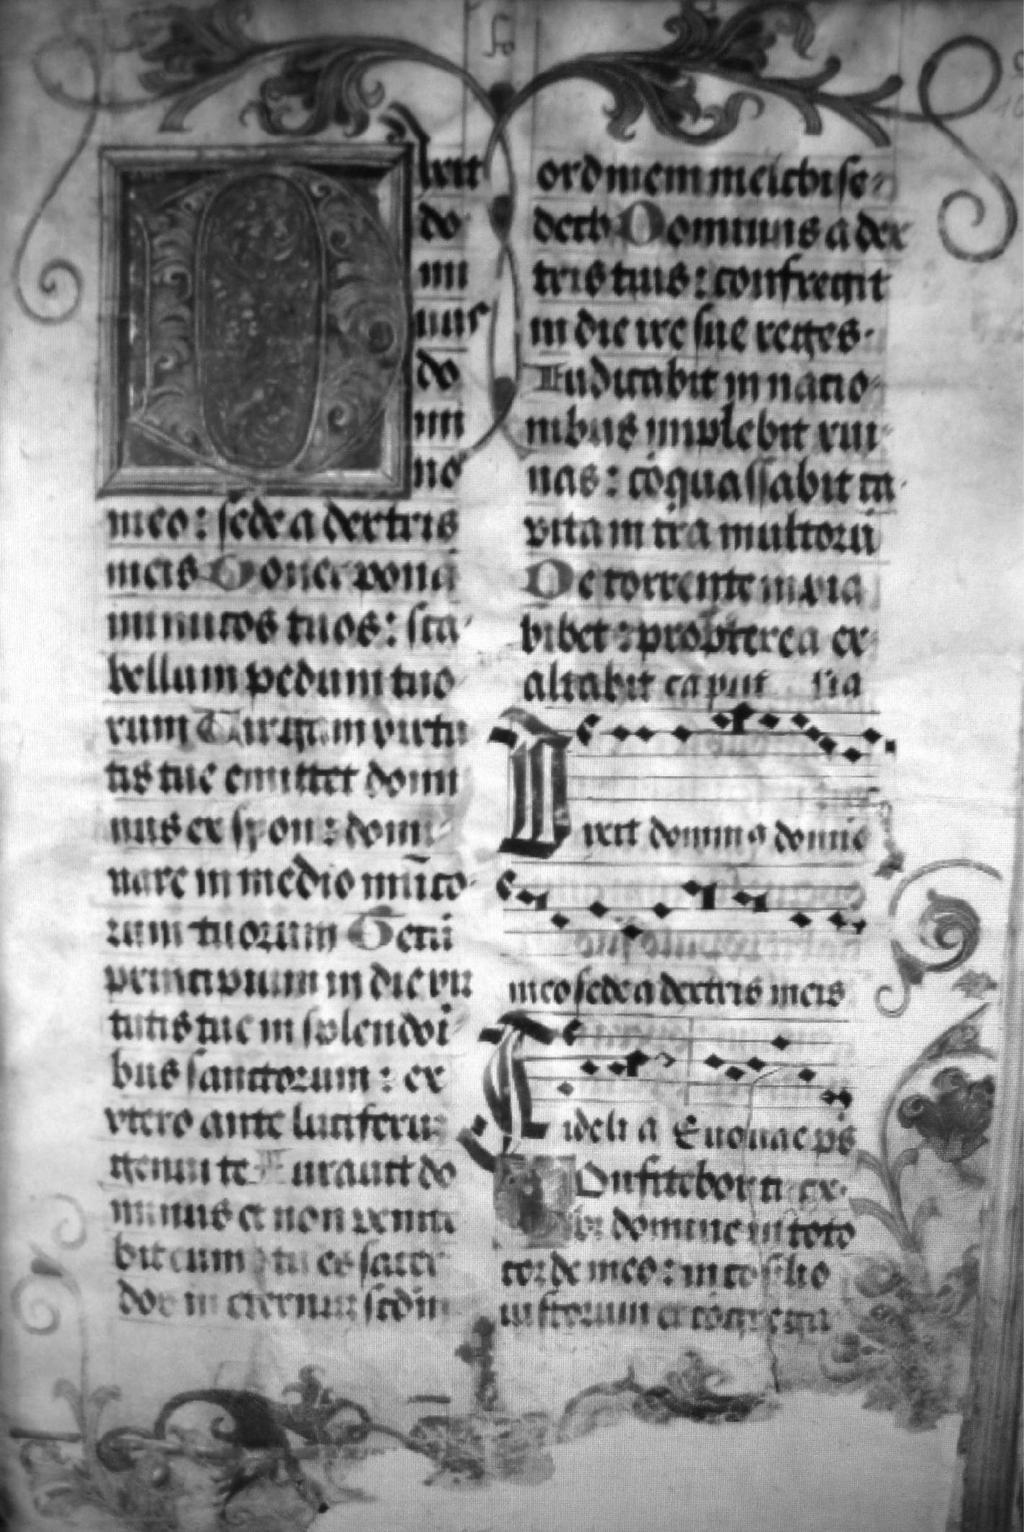 Dixit
do
mi
nus
do
mi
no
meo : sede a dextris
meis Donec ponā
inimicos tuos : sca
bellum pedum tuo
rum Uirgam virtu
tis tue emittet domi
nus ex syon : domi
nare in medio inīico
rum tuorum Tecū
principium in die vir
tutis tue in splendori
bus sanctorum : ex
vtero ante luciferū
genui te Iurauit do
minus et non penite
bit eum : tu es sacer
dos in eternum scdm
ordinem melchise
dech Dominus a dex
tris tuis : confregit
in die ire sue reges
Iudicabit in natio
nibus implebit rui
nas : cōquassabit ca
pita in tr̄a multorū
De torrente in via
bibet : propterea ex
altabit caput
Dixit dominus domino
meo sede a dextris meis
Fidelia Euouae ps
Confitebor ti ex
domine in toto
corde meo : in cōsilio
iustorum et cōgrega